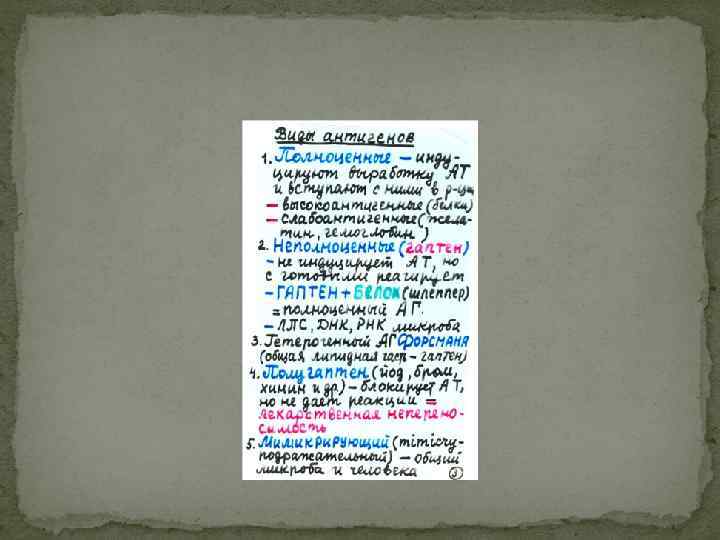 Виды антигенов
1. Полноценные – инду-
цируют выработку АТ
и вступают с ними в р-ции
– высокоантигенные (белки)
– слабоантигенные (жела-
тин, гемоглобин)
2. Неполноценные (гаптен)
– не индуцирует АТ, но
с готовыми реагирует
– ГАПТЕН + БЕЛОК (шлеппер)
= полноценный АГ.
– ЛПС, ДНК, РНК микроба
3. Гетерогенный АГ ФОРСМАНА
(общая липидная гасп – гаптен)
4. Полугаптен (йод, бром,
хинин и др) – блокирует АТ,
но не дает реакции =
лекарственная неперено-
симость
5. Мимикрирующий (mimicry-
подражательный) – общий
микроба и человека